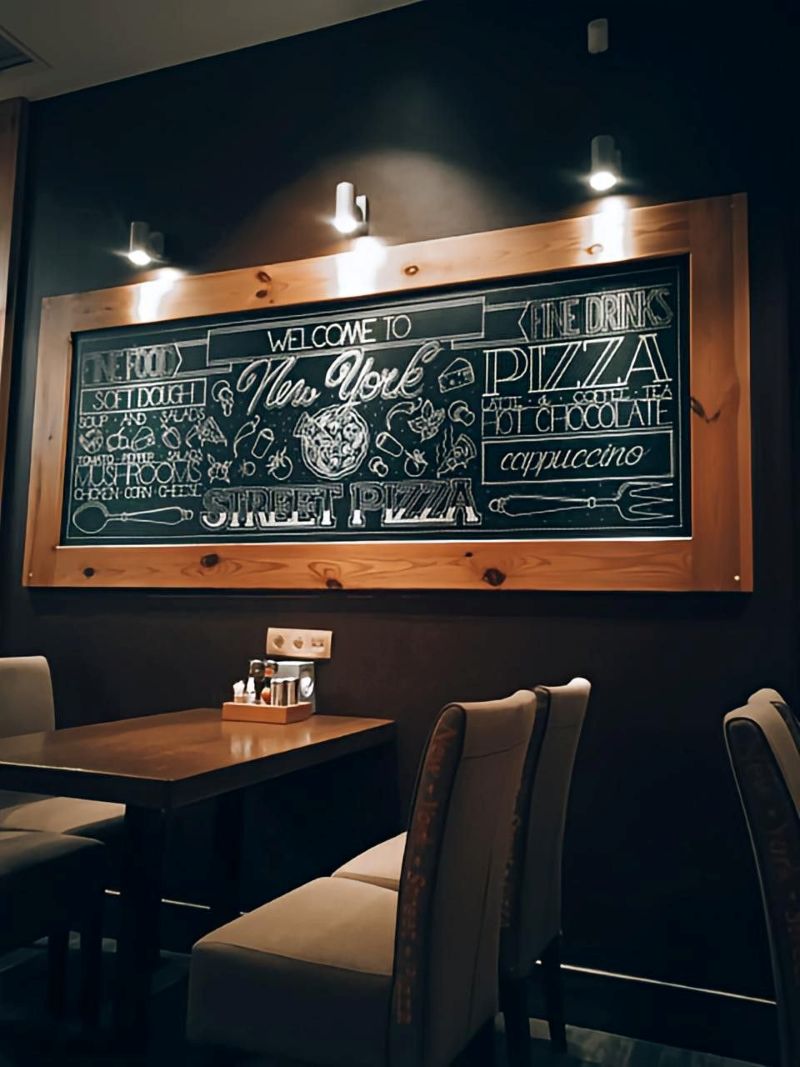 FINE FOOD
SOFT DOUGH
SOUP AND SALADS
TOMATO PEPPER SALADS
MUSHROOMS
CHICKEN CORN CHEESE
WELCOME TO
New York
STREET PIZZA
FINE DRINKS
PIZZA
LATTE & COFFEE TEA
HOT CHOCOLATE
cappuccino
New York Street
New York Street